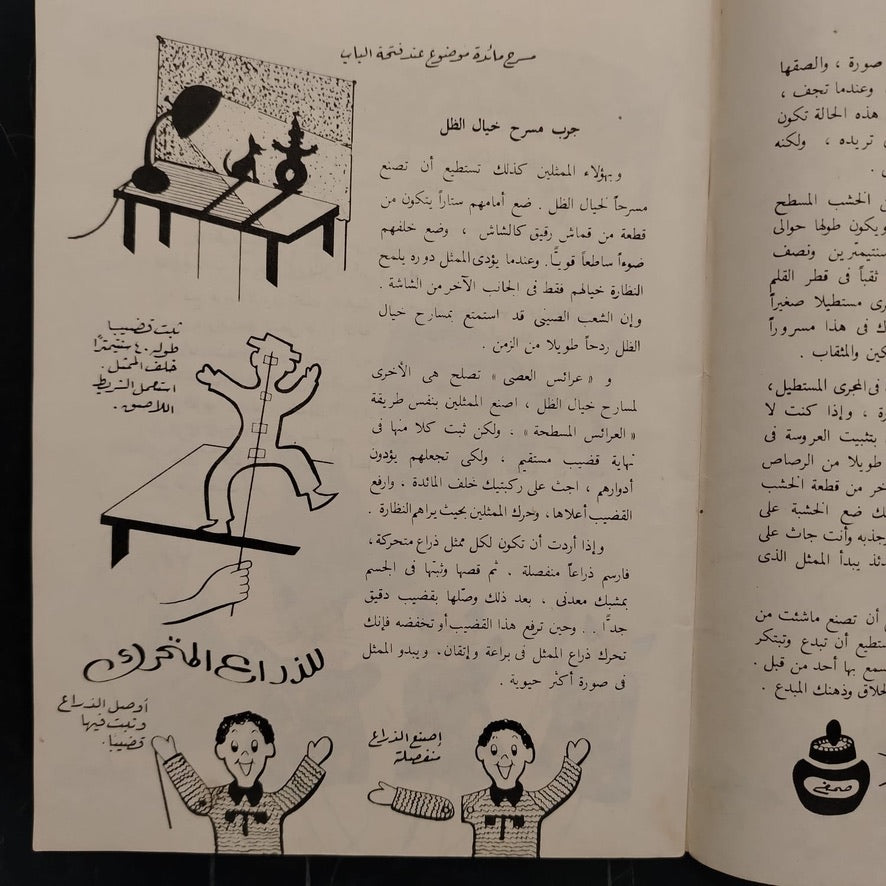 مسرح مائدة موضوع عند فتحة الباب
جرب مسرح خيال الظل
وبهؤلاء الممثلين كذلك تستطيع أن تصنع
مسرحاً لخيال الظل . ضع أمامهم ستاراً يتكون من
قطعة من قماش رقيق كالشاش ، وضع خلفهم
ضوءاً ساطعاً قويًّا. وعندما يؤدى الممثل دوره يلمح
النظارة خيالهم فقط فى الجانب الآخر من الشاشة .
وإن الشعب الصينى قد استمتع بمسارح خيال
الظل ردحاً طويلا من الزمن .
و « عرائس العصى » تصلح هى الأخرى
لمسارح خيال الظل ، اصنع الممثلين بنفس طريقة
« العرائس المسطحة » . ولكن ثبت كلا منها فى
نهاية قضيب مستقيم ، ولكى تجعلهم يؤدون
أدوارهم ، اجث على ركبتيك خلف المائدة ، وارفع
القضيب أعلاها، وحرك الممثلين بحيث يراهم النظارة .
وإذا أردت أن تكون لكل ممثل ذراع متحركة ،
فارسم ذراعاً منفصلة . ثم قصها وثبتها فى الجسم
بمشبك معدنى ، بعد ذلك وصّلها بقضيب دقيق
جدًّا . . وحين ترفع هذا القضيب أو تخفضه فإنك
تحرك ذراع الممثل فى براعة وإتقان ، ويبدو الممثل
فى صورة أكثر حيوية .
ثبت قضيبا
طوله ٤٠ سنتيمترًا
خلف الممثل.
استعمل الشريط
اللاصق.
للذراع المتحرك
أوصل الذراع
وثبت فيها
قضيبًا.
إصنع الذراع
منفصلة
صورة ، والصقها
وعندما تجف ،
هذه الحالة تكون
تريده ، ولكنه
الخشب المسطح
ويكون طولها حوالى
سنتيمترين ونصف
ثقباً فى قطر القلم
مستطيلا صغيراً
فى هذا مسروراً
والمثقاب .
فى المجرى المستطيل،
، وإذا كنت لا
بتثبيت العروسة فى
طويلا من الرصاص
من قطعة الخشب
ضع الخشبة على
وأنت جاث على
يبدأ الممثل الذى
أن تصنع ماشئت من
أن تبدع وتبتكر
بها أحد من قبل .
وذهنك المبدع .
صمغ